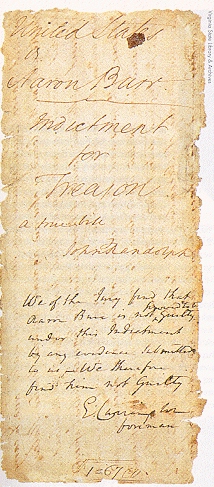 United States
vs
Aaron Burr
Indictment
for
Treason
a true bill
John Randolph
We of the Jury find that
Aaron Burr is not proved to be guilty
under this Indictment
by any evidence submitted
to us — We therefore
find him not Guilty
foreman
Virginia State Library & Archives